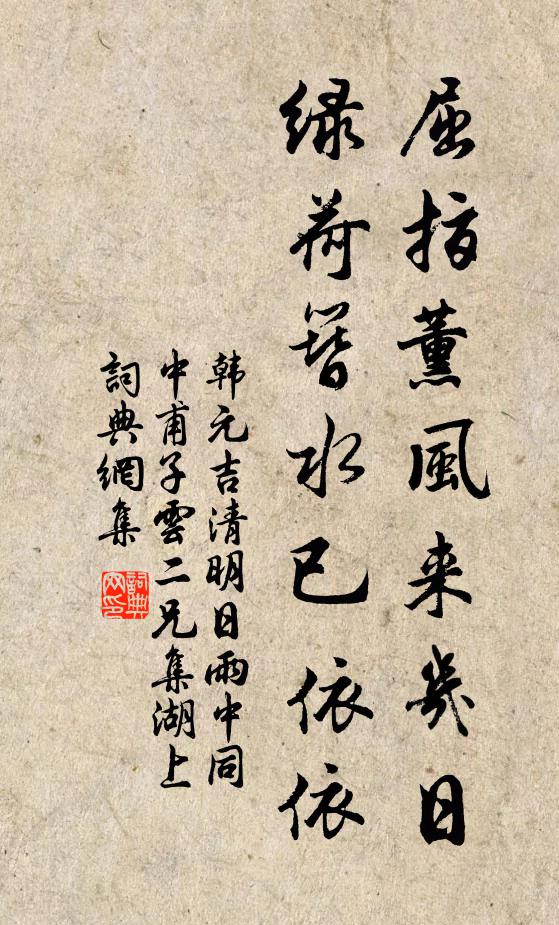 屈指薰風来幾日
緑荷簪水已依依
韩元吉清明日雨中同
中甫子雲二兄集湖上
詞典網集
詞典網印